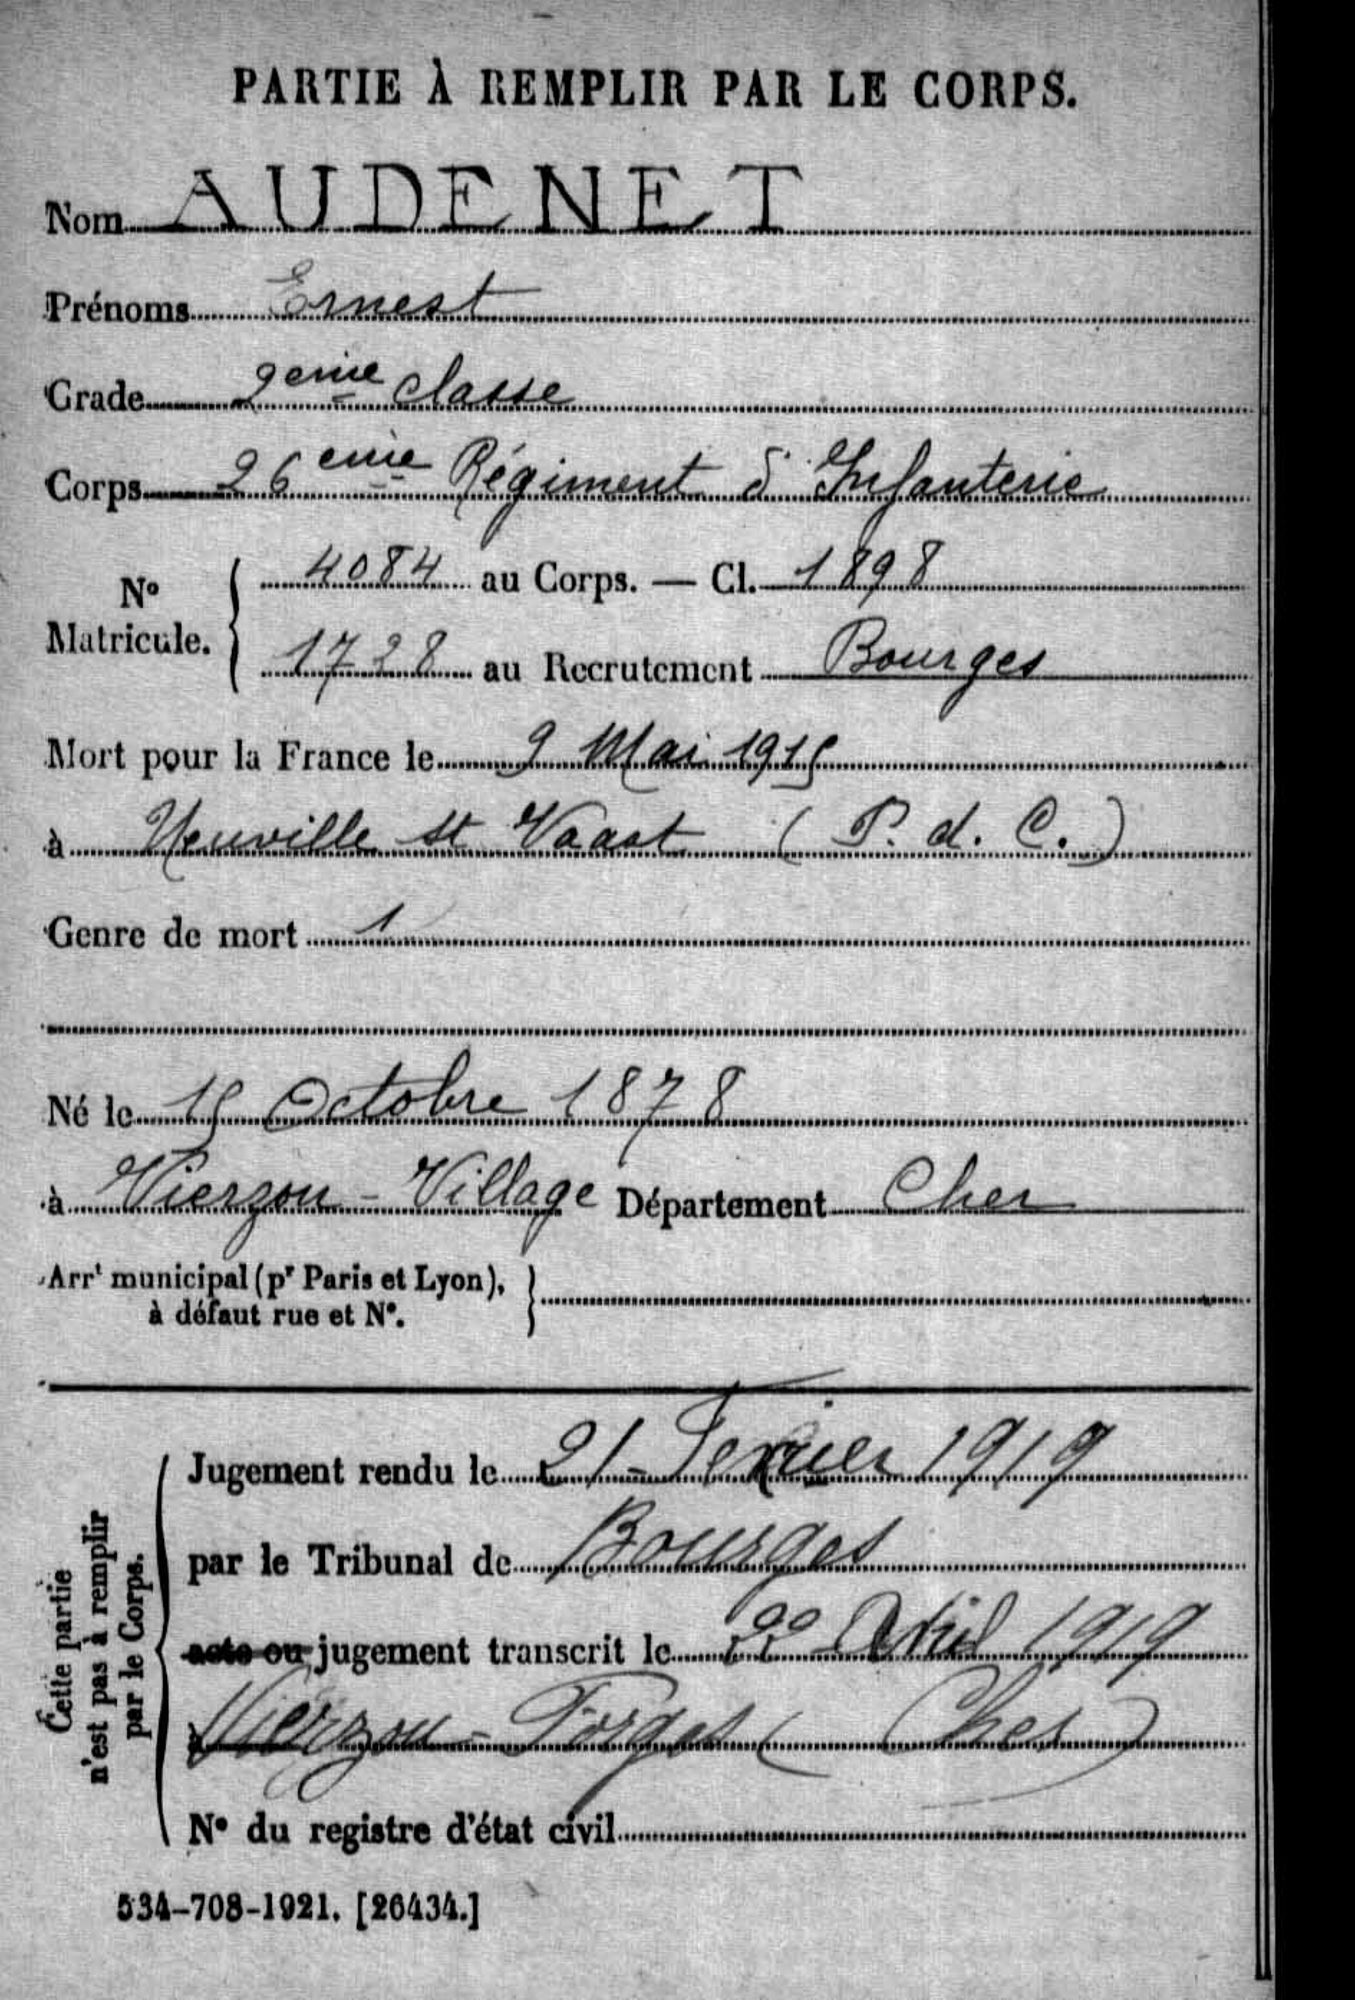 PARTIE À REMPLIR PAR LE CORPS.
Nom AUDENET
Prénoms Ernest
Grade 2eme classe
Corps 26eme Régiment d'Infanterie
No Matricule. { 4084 au Corps. — Cl. 1898
1728 au Recrutement Bourges
Mort pour la France le 9 Mai 1915
à Neuville St Vaast (P. d. C.)
Genre de mort
Né le 15 Octobre 1878
à Vierzon-Village Département Cher
Arrt municipal (pr Paris et Lyon),
à défaut rue et No. }
Cette partie
n'est pas à remplir
par le Corps.
Jugement rendu le 21 Février 1919
par le Tribunal de Bourges
acte ou jugement transcrit le 22 Avril 1919
à Vierzon-Forges (Cher)
No du registre d'état civil
534-708-1921. [26434.]